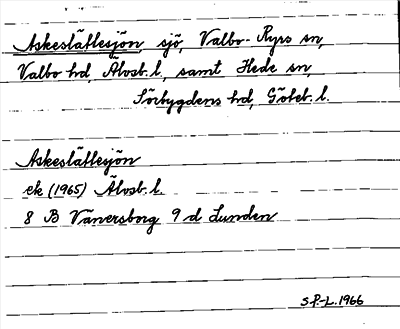 Askeslättesjön, sjö, Valbo-Ryrs sn,
Valbo hd, Älvsb. l., samt Hede sn,
Sörbygdens hd, Göteb. l.
Askeslättesjön
ek (1965) Älvsb. l.
8 B Vänersborg 9 d Lunden
S.P.-L. 1966